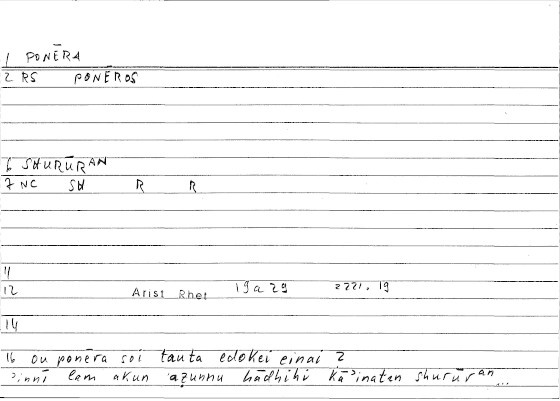 1 PONĒRA
2 RS PONĒROS
6 SHURŪRAN
7 NC SH R R
11
12 Arist Rhet 19a29 2221.19
14
16 ou ponēra soi tauta edokei einai ?
ʾinnī lam akun ʾaẓunnu hādhihi kāʾinaten shurūran ...